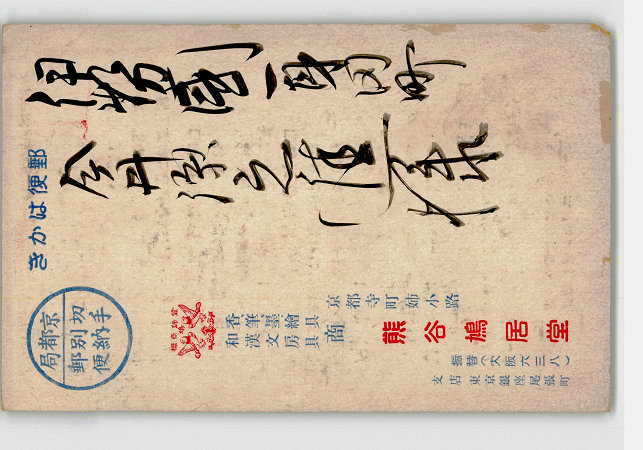 郵便はかき
伊勢國一身田町
今井
京都局
切手
別納
郵便
京都寺町姉小路
香筆墨繪具
和漢文房具商
熊谷鳩居堂
振替(大阪六三八)
支店東京銀座尾張町